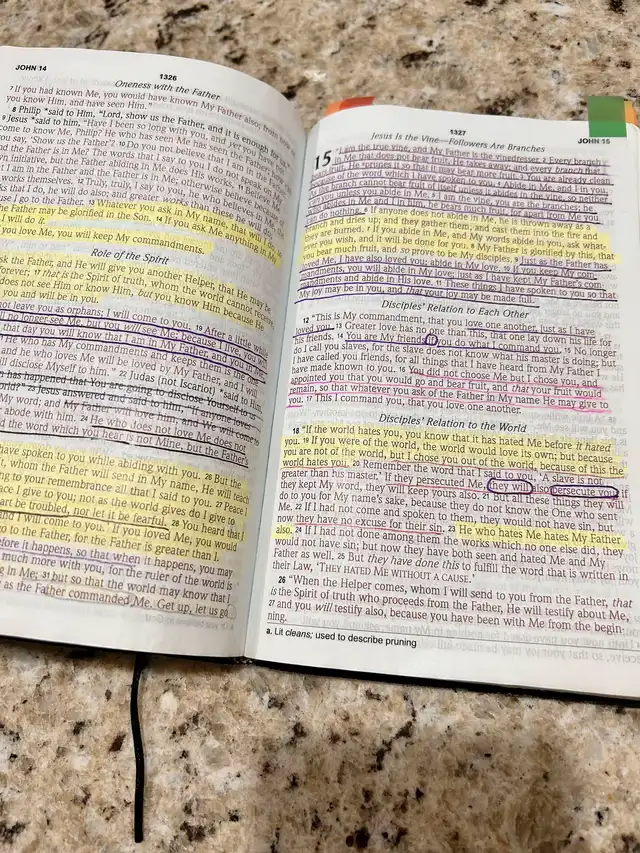 JOHN 14
1326
Oneness with the Father
7 If you had known Me, you would have known My Father also; from now on
you know Him, and have seen Him."
8 Philip *said to Him, "Lord, show us the Father, and it is enough for us."
9 Jesus *said to him, "Have I been so long with you, and yet you have not
come to know Me, Philip? He who has seen Me has seen the Father; how
you say, 'Show us the Father'? 10 Do you not believe that I am in the
and the Father is in Me? The words that I say to you I do not speak on
own initiative, but the Father abiding in Me does His works.
I am in the Father and the Father is in Me; otherwise believe because
works themselves. 12 Truly, truly, I say to you, he who believes in Me,
ks that I do, he will do also; and greater works than these he will do;
use I go to the Father. 13 Whatever you ask in My name, that will I do,
the Father may be glorified in the Son. 14 If you ask Me anything in My
I will do it.
you love Me, you will keep My commandments.
Role of the Spirit
ask the Father, and He will give you another Helper, that He may be
forever; 17 that is the Spirit of truth, whom the world cannot receive,
does not see Him or know Him, but you know Him because He
you and will be in you.
not leave you as orphans; I will come to you. 19 After a little while
l no longer see Me, but you will see Me; because I live, you
that day you will know that I am in My Father, and you in Me,
He who has My commandments and keeps them is the one
and he who loves Me will be loved by My Father, and I will
disclose Myself to him." 22 Judas (not Iscariot) *said to Him,
has happened that You are going to disclose Yourself to us
orld?" 23 Jesus answered and said to him, "If anyone loves
My word; and My Father will love him, and We will come to
abode with him. 24 He who does not love Me does not
the word which you hear is not Mine, but the Father's
have spoken to you while abiding with you. 26 But the
t, whom the Father will send in My name, He will teach
ng to your remembrance all that I said to you. 27 Peace
ace I give to you; not as the world gives do I give to
art be troubled, nor let it be fearful. 28 You heard that
and I will come to you.' If you loved Me, you would
o to the Father, for the Father is greater than I.
efore it happens, so that when it happens, you may
much more with you, for the ruler of the world is
ng in Me; 31 but so that the world may know that I
as the Father commanded Me. Get up, let us go
1327
JOHN 15
Jesus Is the Vine—Followers Are Branches
15 "I am the true vine, and My Father is the vinedresser. 2 Every branch
in Me that does not bear fruit, He takes away; and every branch that
bears fruit, He prunes it so that it may bear more fruit. 3 You are already clean
because of the word which I have spoken to you. 4 Abide in Me, and I in you.
As the branch cannot bear fruit of itself unless it abides in the vine, so neither
can you unless you abide in Me. 5 I am the vine, you are the branches; he
who abides in Me and I in him, he bears much fruit, for apart from Me you
can do nothing. 6 If anyone does not abide in Me, he is thrown away as a
branch and dries up; and they gather them, and cast them into the fire and
they are burned. 7 If you abide in Me, and My words abide in you, ask what-
ever you wish, and it will be done for you. 8 My Father is glorified by this, that
you bear much fruit, and so prove to be My disciples. 9 Just as the Father has
loved Me, I have also loved you; abide in My love. 10 If you keep My com-
mandments, you will abide in My love; just as I have kept My Father's com-
mandments and abide in His love. 11 These things I have spoken to you so that
My joy may be in you, and that your joy may be made full.
Disciples' Relation to Each Other
12 "This is My commandment, that you love one another, just as I have
loved you. 13 Greater love has no one than this, that one lay down his life for
his friends. 14 You are My friends if you do what I command you. 15 No longer
do I call you slaves, for the slave does not know what his master is doing; but
I have called you friends, for all things that I have heard from My Father I
have made known to you. 16 You did not choose Me but I chose you, and
appointed you that you would go and bear fruit, and that your fruit would
remain, so that whatever you ask of the Father in My name He may give to
you. 17 This I command you, that you love one another.
Disciples' Relation to the World
18 "If the world hates you, you know that it has hated Me before it hated
you. 19 If you were of the world, the world would love its own; but because
you are not of the world, but I chose you out of the world, because of this the
world hates you. 20 Remember the word that I said to you, 'A slave is not
greater than his master.' If they persecuted Me, they will also persecute you; if
they kept My word, they will keep yours also. 21 But all these things they will
do to you for My name's sake, because they do not know the One who sent
Me. 22 If I had not come and spoken to them, they would not have sin, but
now they have no excuse for their sin. 23 He who hates Me hates My Father
also. 24 If I had not done among them the works which no one else did, they
would not have sin; but now they have both seen and hated Me and My
Father as well. 25 But they have done this to fulfill the word that is written in
their Law, 'THEY HATED ME WITHOUT A CAUSE.'
26 "When the Helper comes, whom I will send to you from the Father, that
is the Spirit of truth who proceeds from the Father, He will testify about Me,
27 and you will testify also, because you have been with Me from the begin-
ning.
a. Lit cleans; used to describe pruning